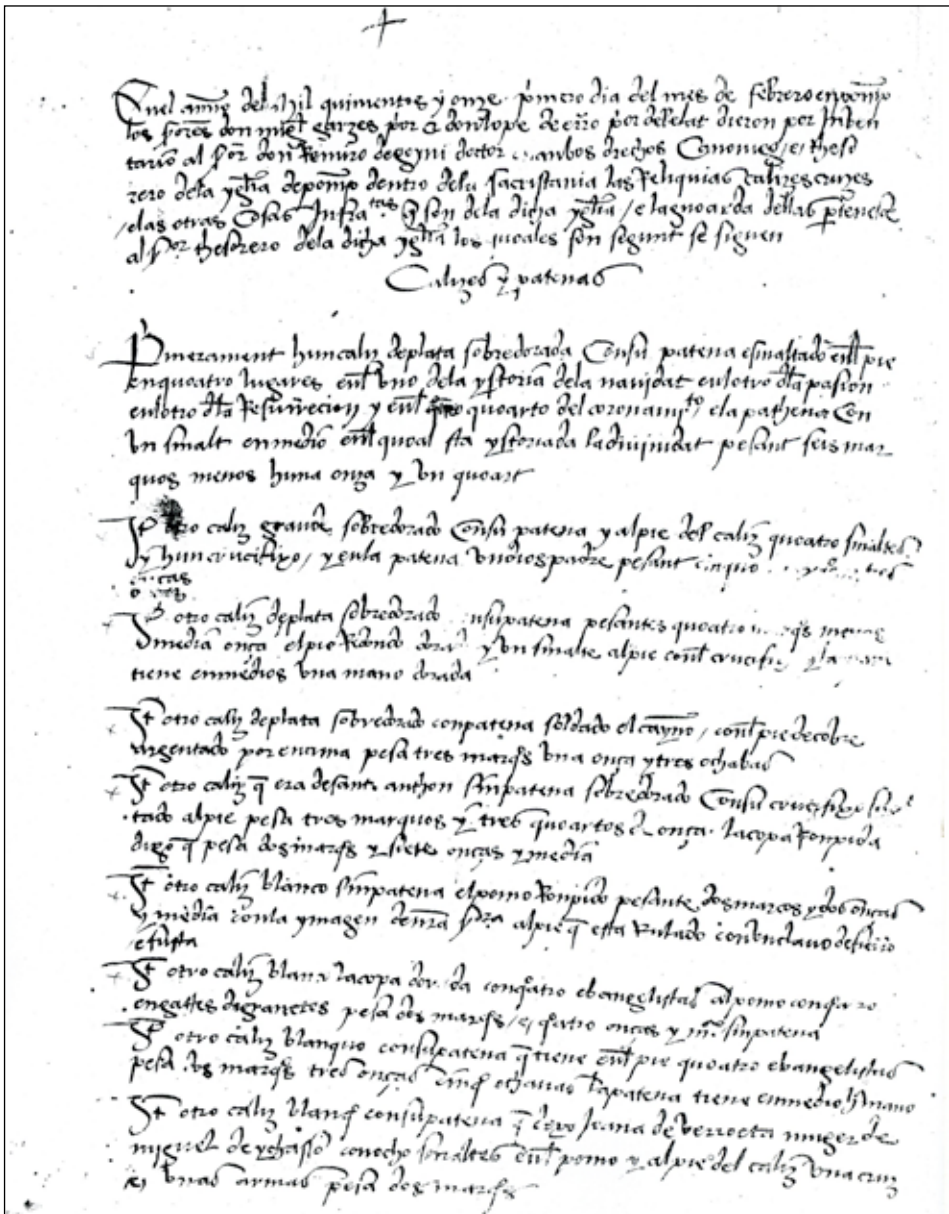 En el anno de Mil quinientos y onze primero dia del mes de febrero en pomp
los sores don miguel garzes por don lope de erro por dellat dieron por Inben
tario al sor don Remiro de goyni doctor ambos drechos Canonug e theso
rero dela yglia de pomp dentro dela sacristania las Reliquias calizes cruzes
e las otras Cosas Infra tas q son dela dicha yglia / e la guoarda dellas ptenesce
al sor thesorero dela dicha yglia los quoales son segunt se siguen
Calizes y patenas
Primerament hun caliz de plata sobredorada Con su patena esmaltado enl pie
en quoatro lugares enl vno dela ystoria dela navidat en lotro dla pasion
en lotro dla Resurrecion y enl quoarto del coronamito e la pathena Con
vn smalt en medio enl quoal sta ystoriada la divinidat pesant seis mar
quos menos huna onça y vn quoart
It otro caliz grande sobredorado Con su patena y al pie del caliz quoatro smaltes
y hun crucifixo / y en la patena vn dios padre pesant cinquo tres
onças
It otro caliz de plata sobredorado su patena pesantes quoatro menos
media onça el pie Redondo y vn smalte al pie conl crucifi y la
tiene en medios vna mano dorada
It otro caliz de plata sobredorado con patena soldado el / conl pie de cobre
argentado por encima pesa tres marqs vna onça y tres ochabas
It otro caliz q era de sant anthon sin patena sobredorado Con su crucifixo
tado al pie pesa tres marquos y tres quoartos d onça. la copa Ronpida
digo q pesa dos marqs y siete onças y media
It otro caliz blanco sin patena el pomo Ronpido pesante dos marcos y dos onças
y media con la ymagen de nra sra al pie q esta con vn clavo de fierro
e fusta
It otro caliz blanc la copa dorada con qatro ebangelistas al pomo con
engastes de pesa dos marqs / e qatro onças y ma sin patena
It otro caliz blanquo con su patena q tiene enl pie quoatro ebangelistas
pesa dos marqs tres onças cinq ochavas la patena tiene en medio h mano
It otro caliz blanq con su patena q dexo Joana de berroeta muger de
miguel de con ocho smaltes enl pomo y al pie del caliz vna cruz
e vnas armas pesa dos marqs